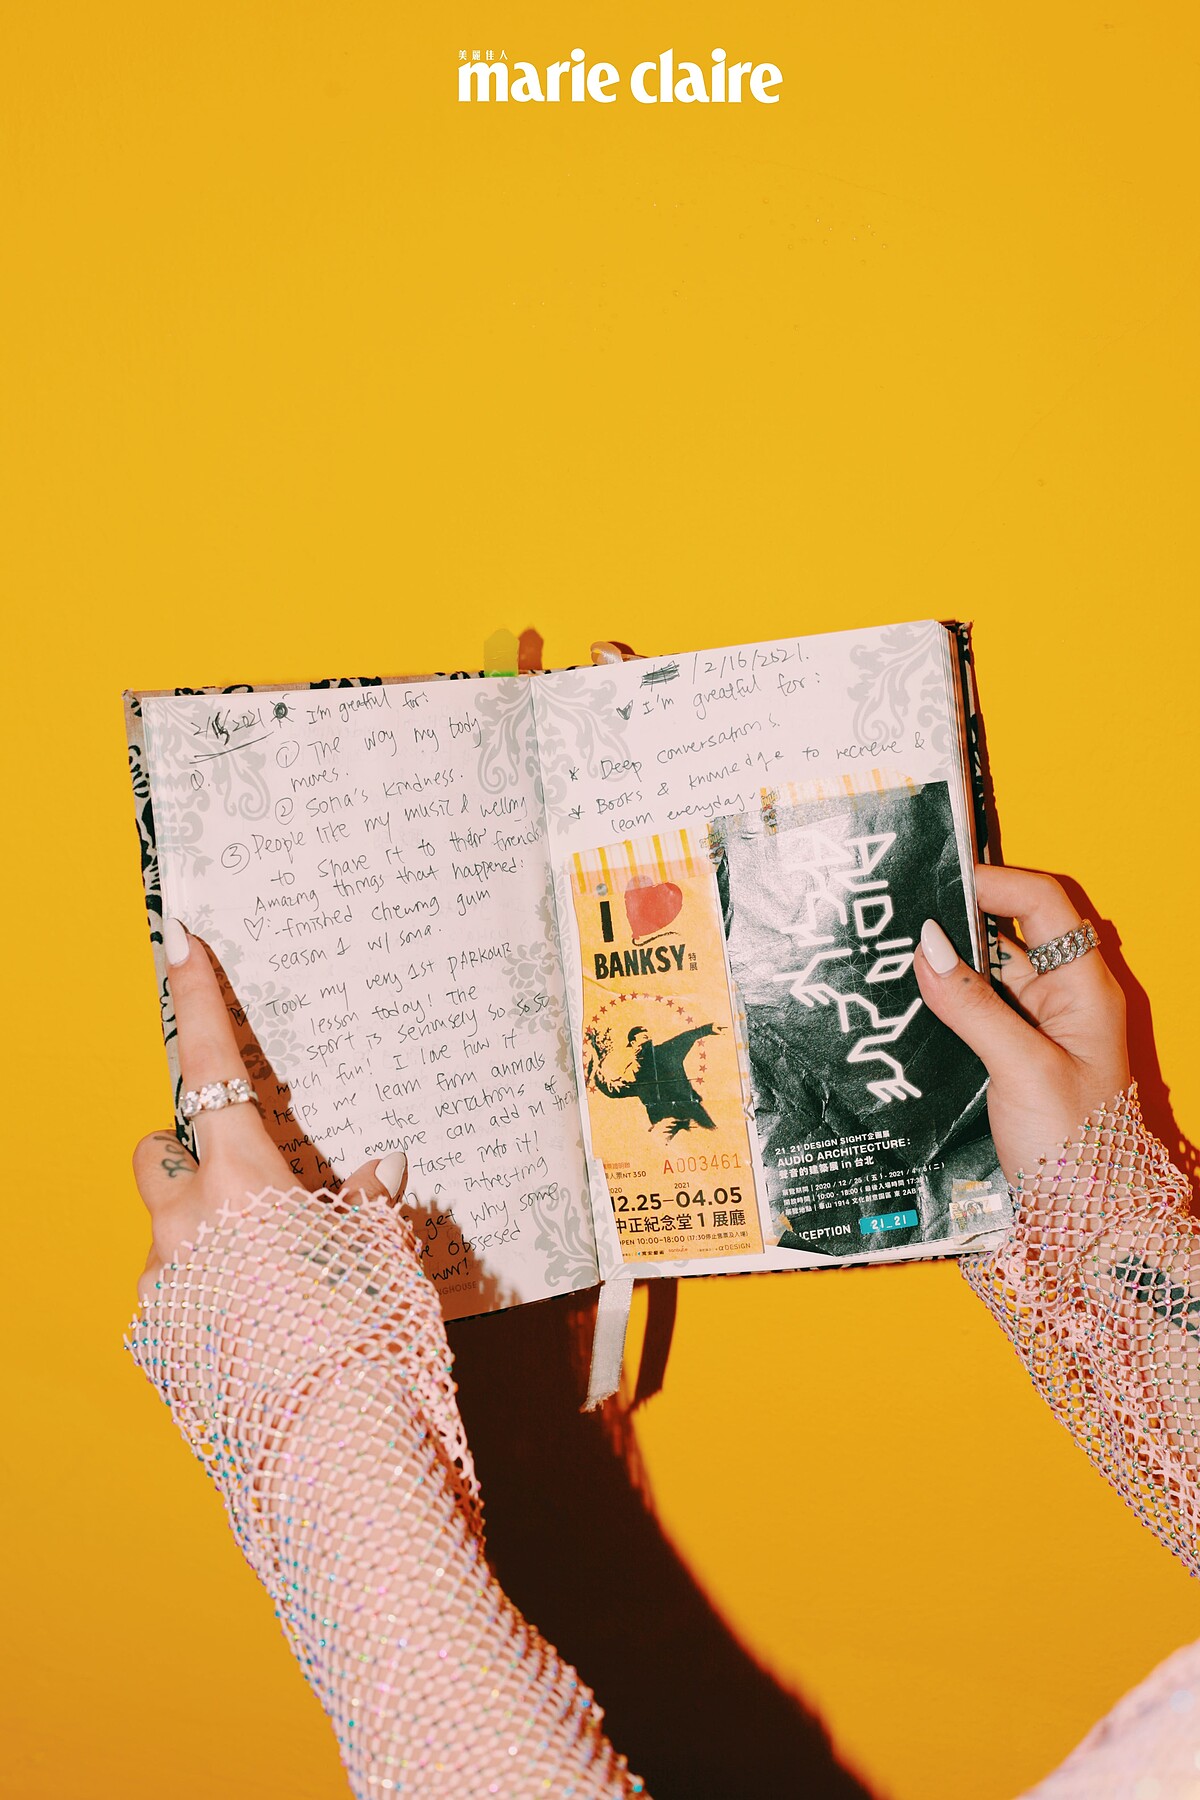 美麗佳人
marie claire
2/15/2021 I'm greatful for:
① The way my body
moves.
② Sona's kindness.
③ People like my music & willing
to share it to their friends
Amazing things that happened:
♡ -finished chewing gum
season 1 w/ sona.
♡ Took my very 1st PARKOUR
lesson today! The
sport is seriously so so so
much fun! I love how it
helps me learn from animals
movement, the
& how everyone can add in their
taste into it!
a intresting
get why some
obssesed
now!
/2/16/2021.
♥ I'm greatful for:
* Deep conversations.
* Books & knowledge to recieve &
learn everyday~
I
BANKSY 特展
人票NT 350
A003461
2020 2021
12.25—04.05
中正紀念堂1展廳
OPEN 10:00-18:00 (17:30停止售票及入場)
AUDIO
ARCHITECTURE
21_21 DESIGN SIGHT企画展
AUDIO ARCHITECTURE:
聲音的建築展 in 台北
展覽期間 | 2020 / 12 / 25 (五) - 2021 / 4 / 6 (二)
開放時間 | 10:00 - 18:00 (最後入場時間 17:30)
展覽地點 | 華山 1914 文化創意園區 東 2AB
INCEPTION 21_21